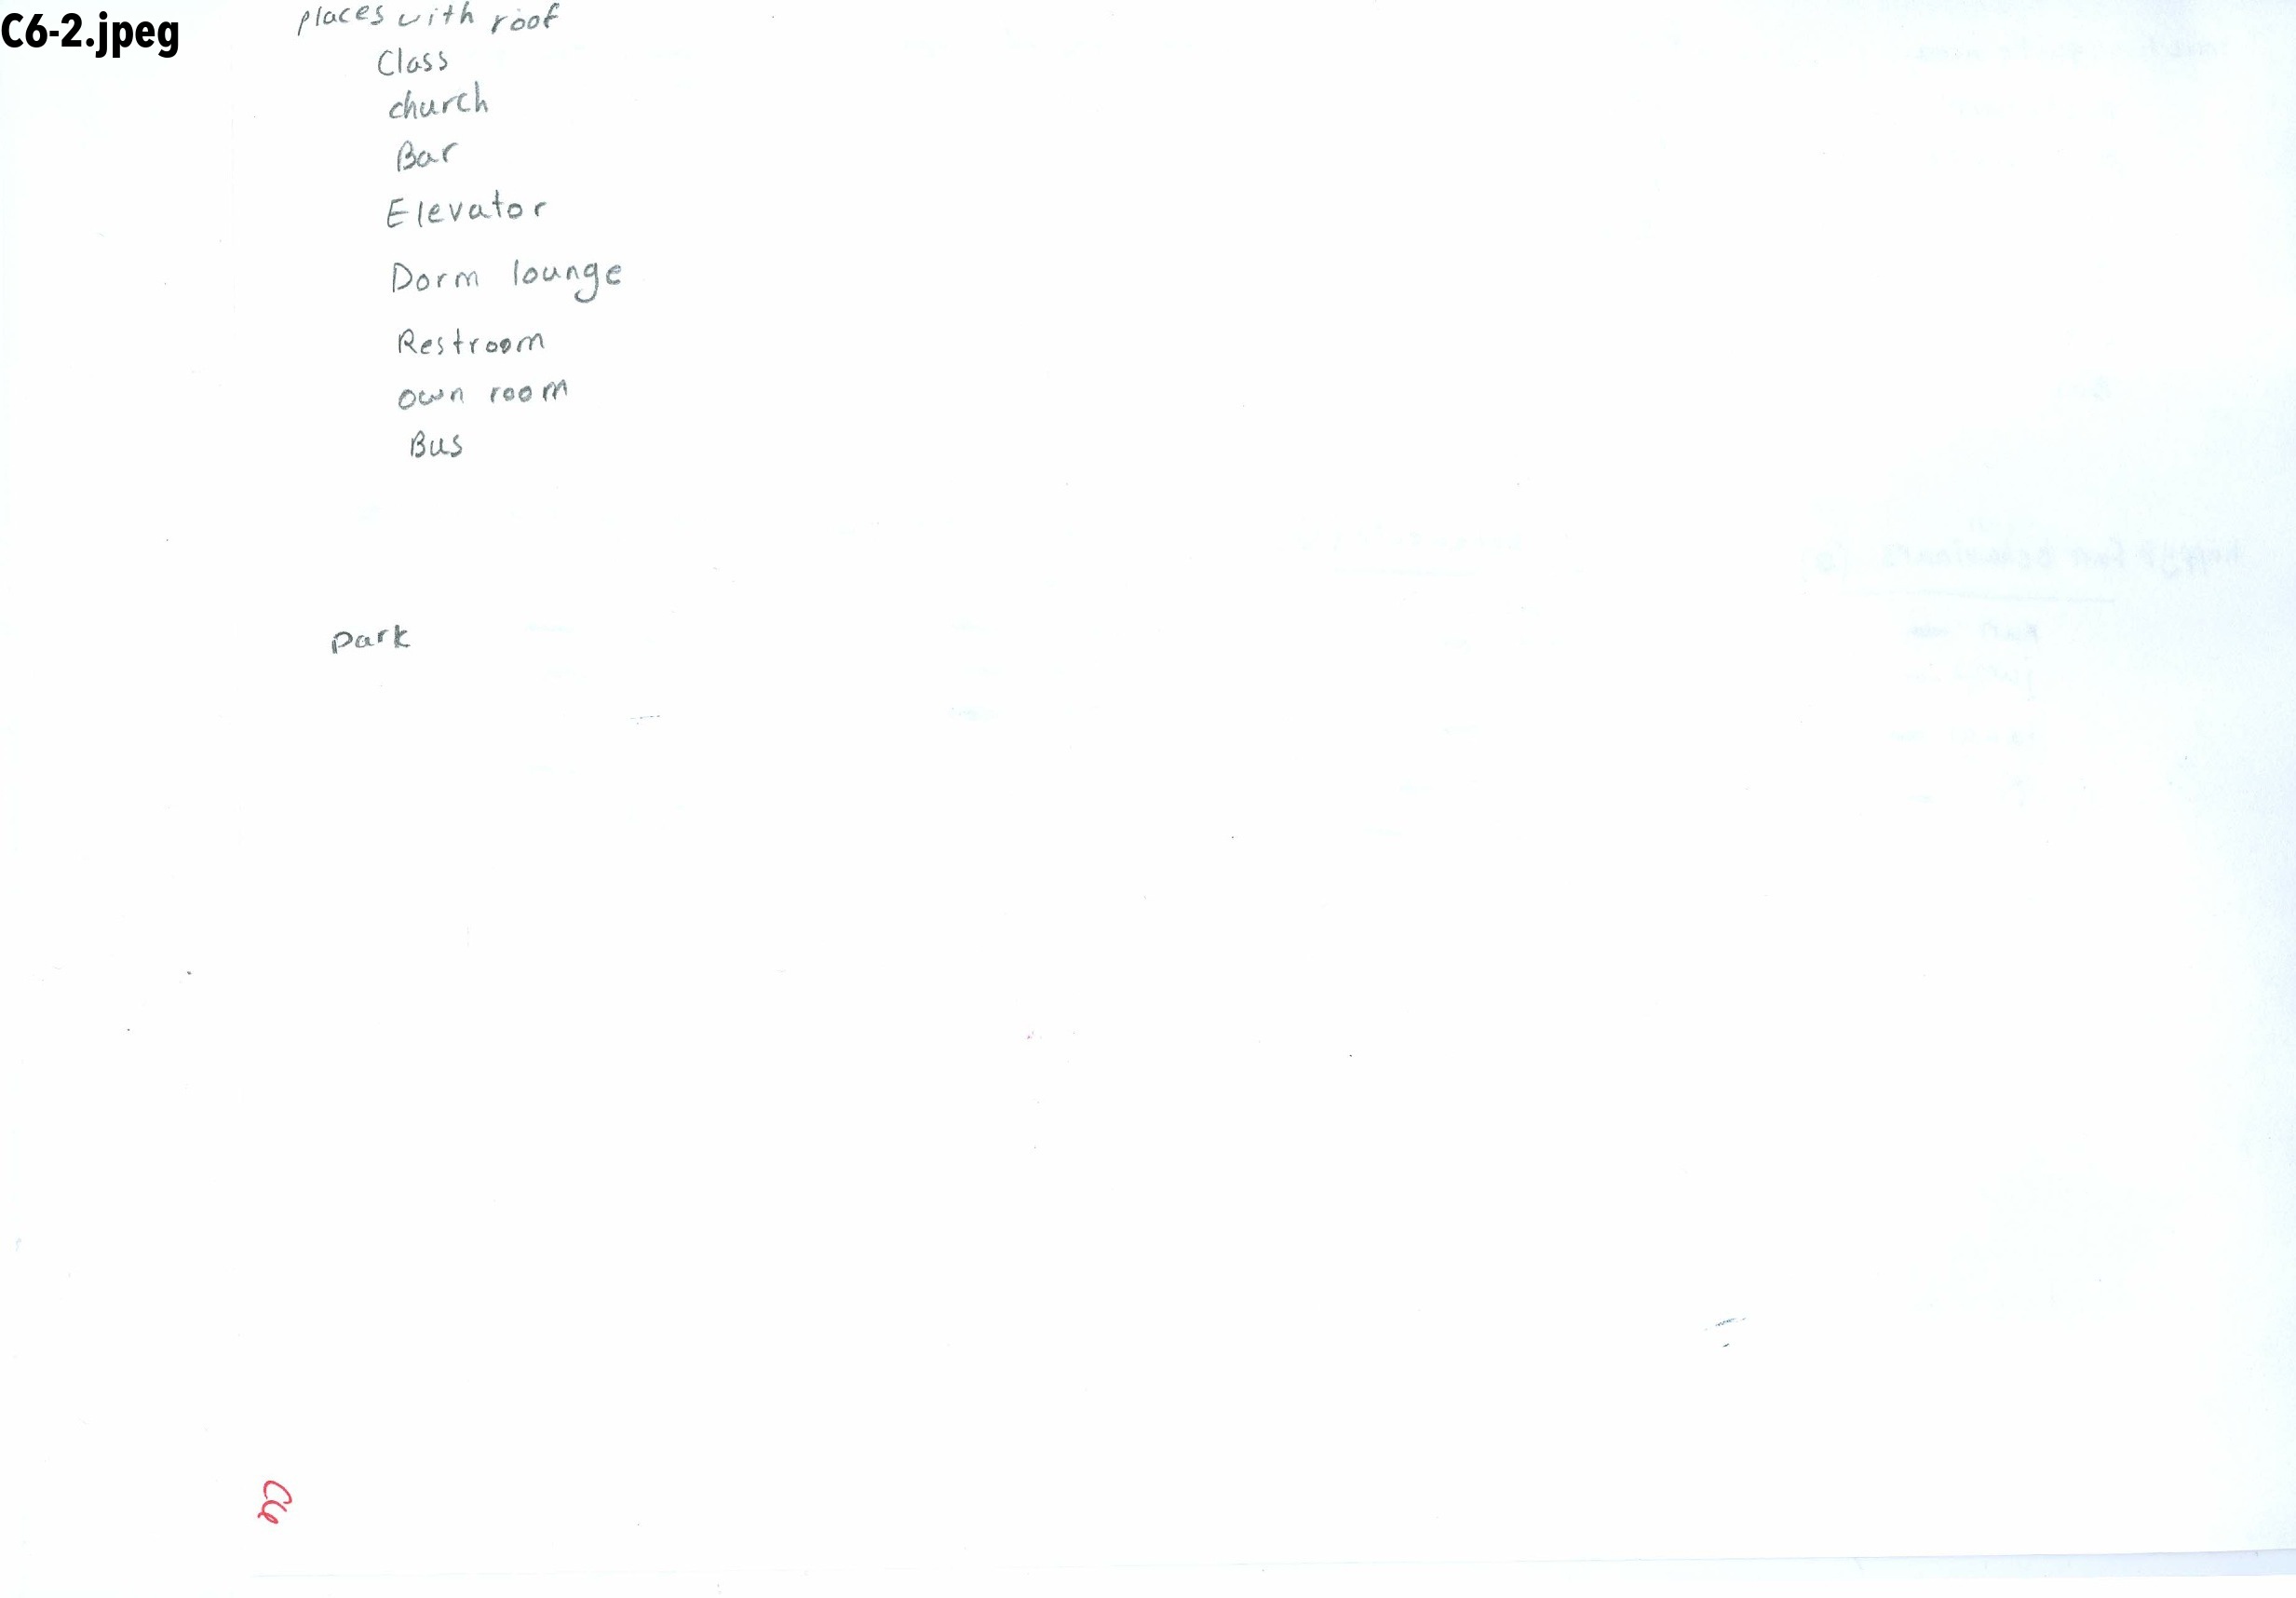 C6-2.jpeg
places with roof
Class
church
Bar
Elevator
Dorm lounge
Restroom
own room
Bus
park
C6